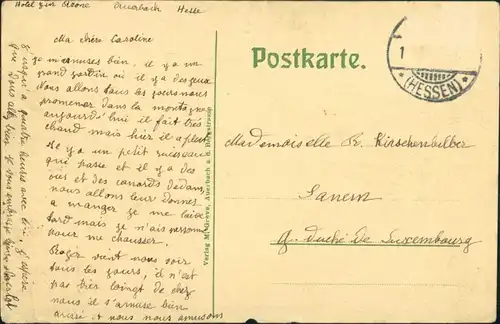 Hotel zur Krone Auerbach Hesse
Ma chère Caroline
je m'amuse bien, il y a un
grand jardin où il y a des jeux
Nous allons tous les jours nous
promener dans la montagne
aujourd'hui il fait très
chaud mais hier il a plu
Il y a un petit ruisseau
qui passe et il y a des
oies et des canards dedans,
nous allons leur donner
a manger je me lève
tard mais je n'ais personne
pour me chausser.
Roger vient nous voir
tous les jours, il n'est
pas bien loingt de chez
nous il s'amuse bien
aussi et nous nous amusons
jusqu'a quatre heures avec lui, j'espère
que vous allez bien je vous embrasse
Verlag M. Greve, Auerbach a. d. Bergstrasse
Postkarte.
1
*(HESSEN)*
Mademoiselle Kirschenbilber
Sanem
G. Duché de Luxembourg